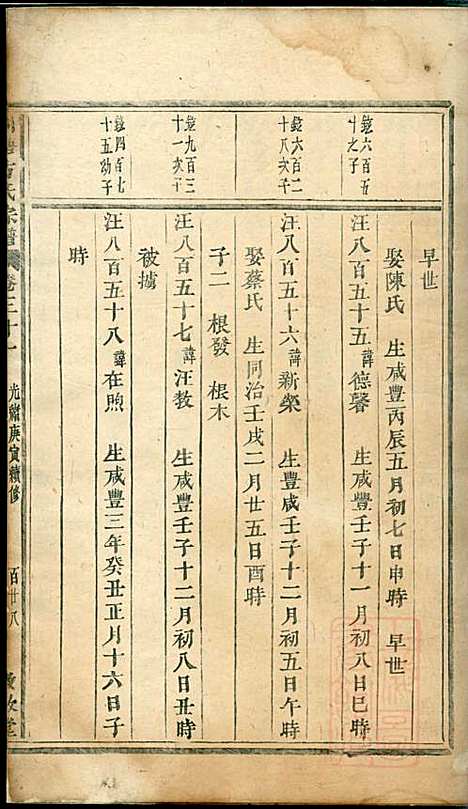 早世
娶陳氏 生咸豐丙辰五月初七日申時 早世
鎰六百五十之子
汪八百五十五諱德馨 生咸豐壬子十一月初八日巳時
鎰六百二十八次子
汪八百五十六諱新榮 生豐咸壬子十二月初五日午時
娶蔡氏 生同治壬戌二月廿五日酉時
子二 根發 根木
鎰九百三十一次子
汪八百五十七諱汪教 生咸豐壬子十二月初八日丑時
被擄
鎰四百七十五幼子
汪八百五十八諱在煦 生咸豐三年癸丑正月十六日子
時
氏宗譜 卷三十一 光緒庚寅續修 百廿八 堂